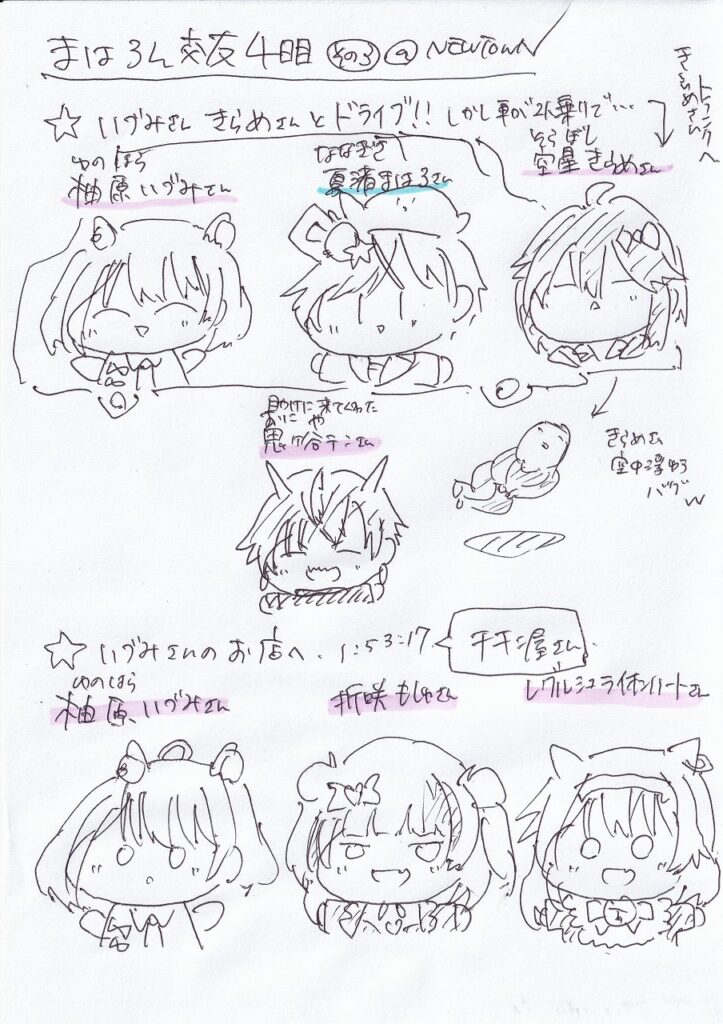 まはろん交友4日目 その3 @ NEWTOWN
☆ いづみさん きらめさんとドライブ!! しかし車が2人乗りで…
トランクへ
きらめさん
ゆのはら
柚原いづみさん
ななぎさ
夏渚まはろさん
そらぼし
空星きらめさん
助けに来てくれた
おにがや
鬼ヶ谷テンさん
きらめさん
空中浮ゆう
バグw
☆ いづみさんのお店へ. 1:53:17
チキン屋さん
ゆのはら
柚原いづみさん
折咲もしゅさん
レグルシュライオンハートさん